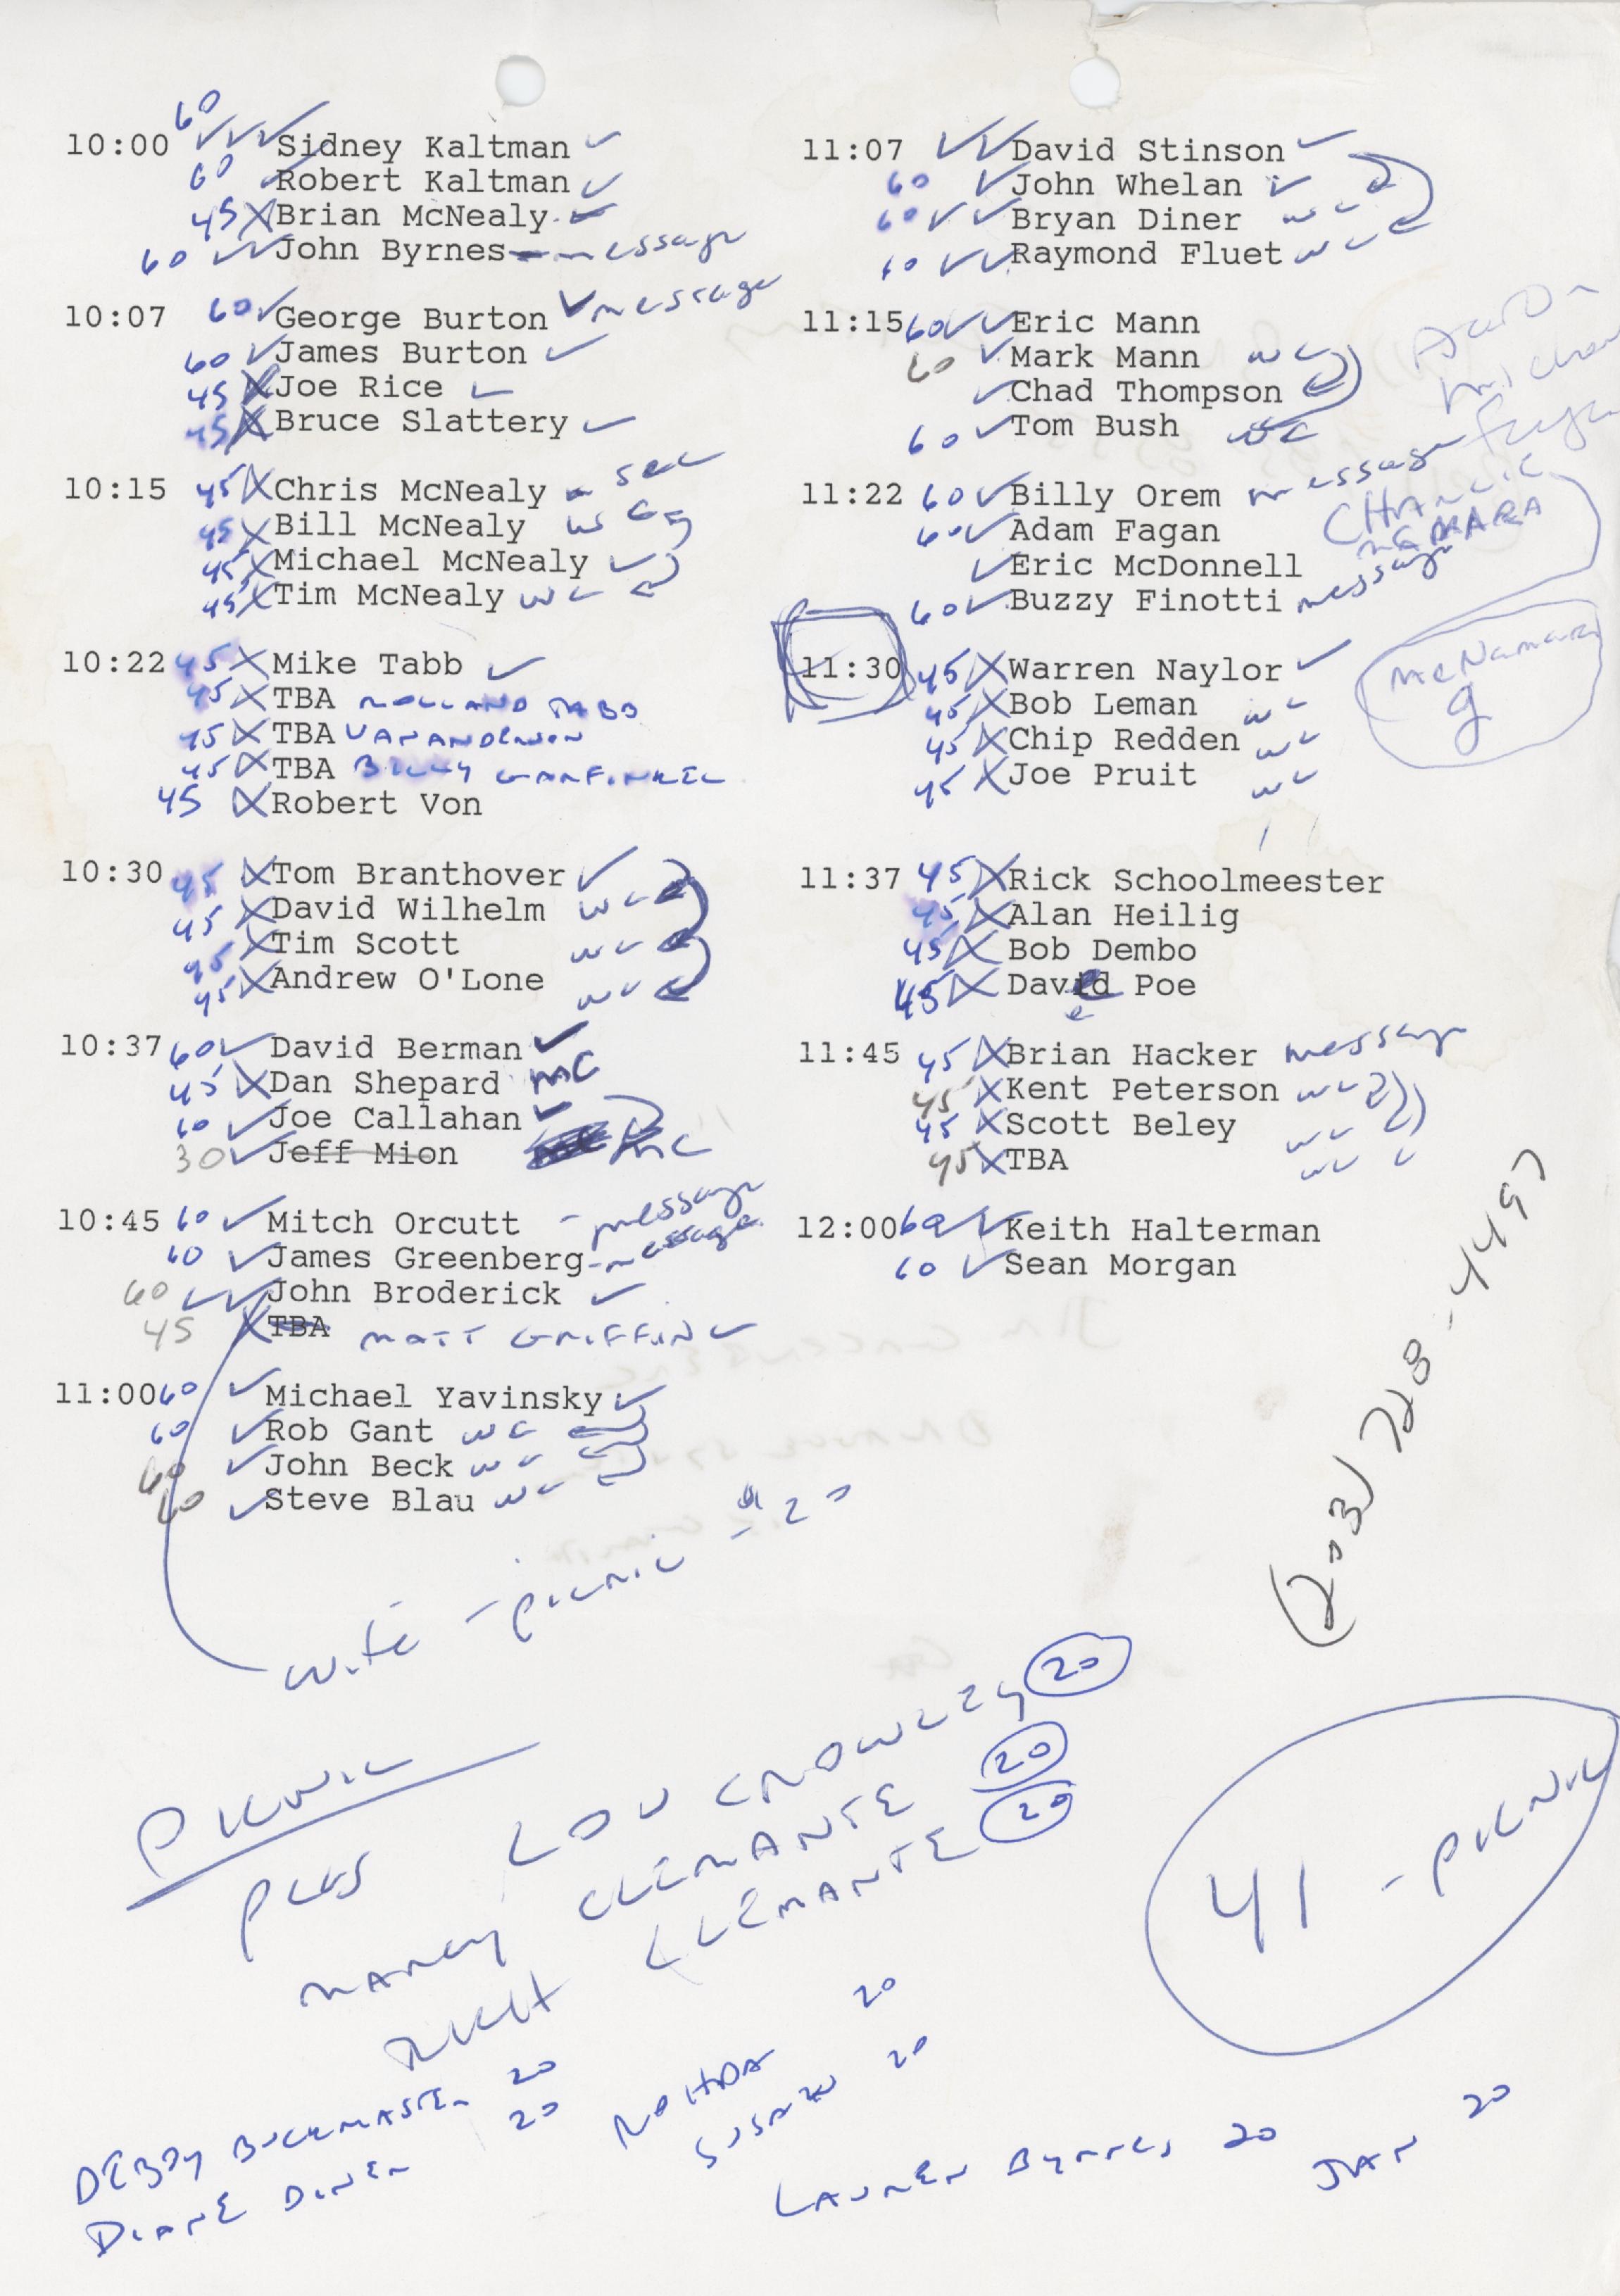 60
10:00 ✓✓✓ Sidney Kaltman ✓
60 ✓ Robert Kaltman ✓
45 X Brian McNealy ✓
60 ✓✓ John Byrnes - message
10:07 60 ✓ George Burton ✓ message
60 ✓ James Burton ✓
45 X Joe Rice ✓
45 X Bruce Slattery ✓
10:15 45 X Chris McNealy - sec
45 X Bill McNealy
45 X Michael McNealy ✓
45 X Tim McNealy wc
10:22 45 X Mike Tabb ✓
45 X TBA TABB
45 X TBA VAN ANDERSON
45 X TBA BILLY GARFINKEL
45 X Robert Von
10:30 45 X Tom Branthover ✓
45 X David Wilhelm wc
45 X Tim Scott wc
45 X Andrew O'Lone wc
10:37 60 ✓ David Berman ✓
45 X Dan Shepard MC
60 ✓ Joe Callahan ✓
30 ✓ Jeff Mion MC
10:45 60 ✓ Mitch Orcutt - message
60 ✓ James Greenberg - message
60 ✓✓ John Broderick ✓
45 X TBA MATT GRIFFIN ✓
11:00 60 ✓ Michael Yavinsky ✓
60 ✓ Rob Gant wc
60 ✓ John Beck wc
60 ✓ Steve Blau wc
wife - picnic - 20
11:07 ✓✓ David Stinson ✓
60 ✓ John Whelan ✓
60 ✓✓ Bryan Diner wc
60 ✓✓ Raymond Fluet wc
11:15 60 ✓✓ Eric Mann
60 ✓ Mark Mann wc
✓ Chad Thompson
60 ✓ Tom Bush wc
11:22 60 ✓ Billy Orem message
60 ✓ Adam Fagan
✓ Eric McDonnell
60 ✓ Buzzy Finotti message
CHARLIE
McNamara
9
11:30 45 X Warren Naylor ✓
45 X Bob Leman wc
45 X Chip Redden wc
45 X Joe Pruit wc
11:37 45 X Rick Schoolmeester
45 X Alan Heilig
45 X Bob Dembo
45 X David Poe
e
11:45 45 X Brian Hacker message
45 X Kent Peterson wc
45 X Scott Beley wc
45 X TBA wc
12:00 60 ✓ Keith Halterman
60 ✓ Sean Morgan
(203) 728-4497
PICNIC
PLUS LOU CROWLEY 20
NANCY CLEMANTE 20
RICH CLEMANTE 20
41 - PICNIC
DEBBY BUCKMASTER 20
DIANE DINER 20
RHODA 20
SUSAN 20
LAUREN BYRNES 20
JAN 20